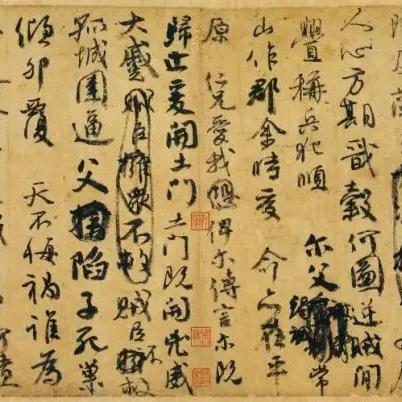 人心方期戩穀何圖逆賊閒
釁稱兵犯順 爾父竭誠常
山作郡余時受 命亦在平
原 仁兄愛我俾爾傳言爾既
歸止爰開土門土門既開凶威
大蹙賊臣擁衆不救賊臣不救
孤城圍逼父陷子死巢
傾卵覆 天不悔禍誰為